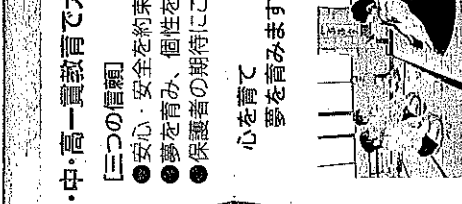 ・中・高一貫教育で
[三つの信頼]
●安心・安全を約束
●夢を育み、個性を
●保護者の期待にこ
心を育て
夢を育みます